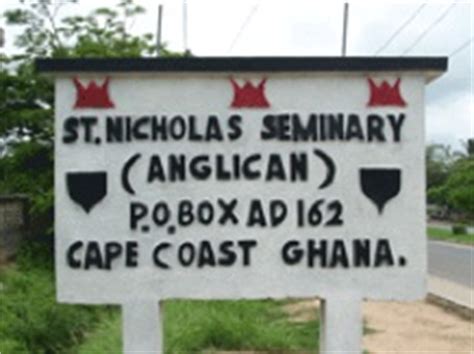 ST. NICHOLAS SEMINARY
(ANGLICAN)
P.O. BOX AD 162
CAPE COAST GHANA.